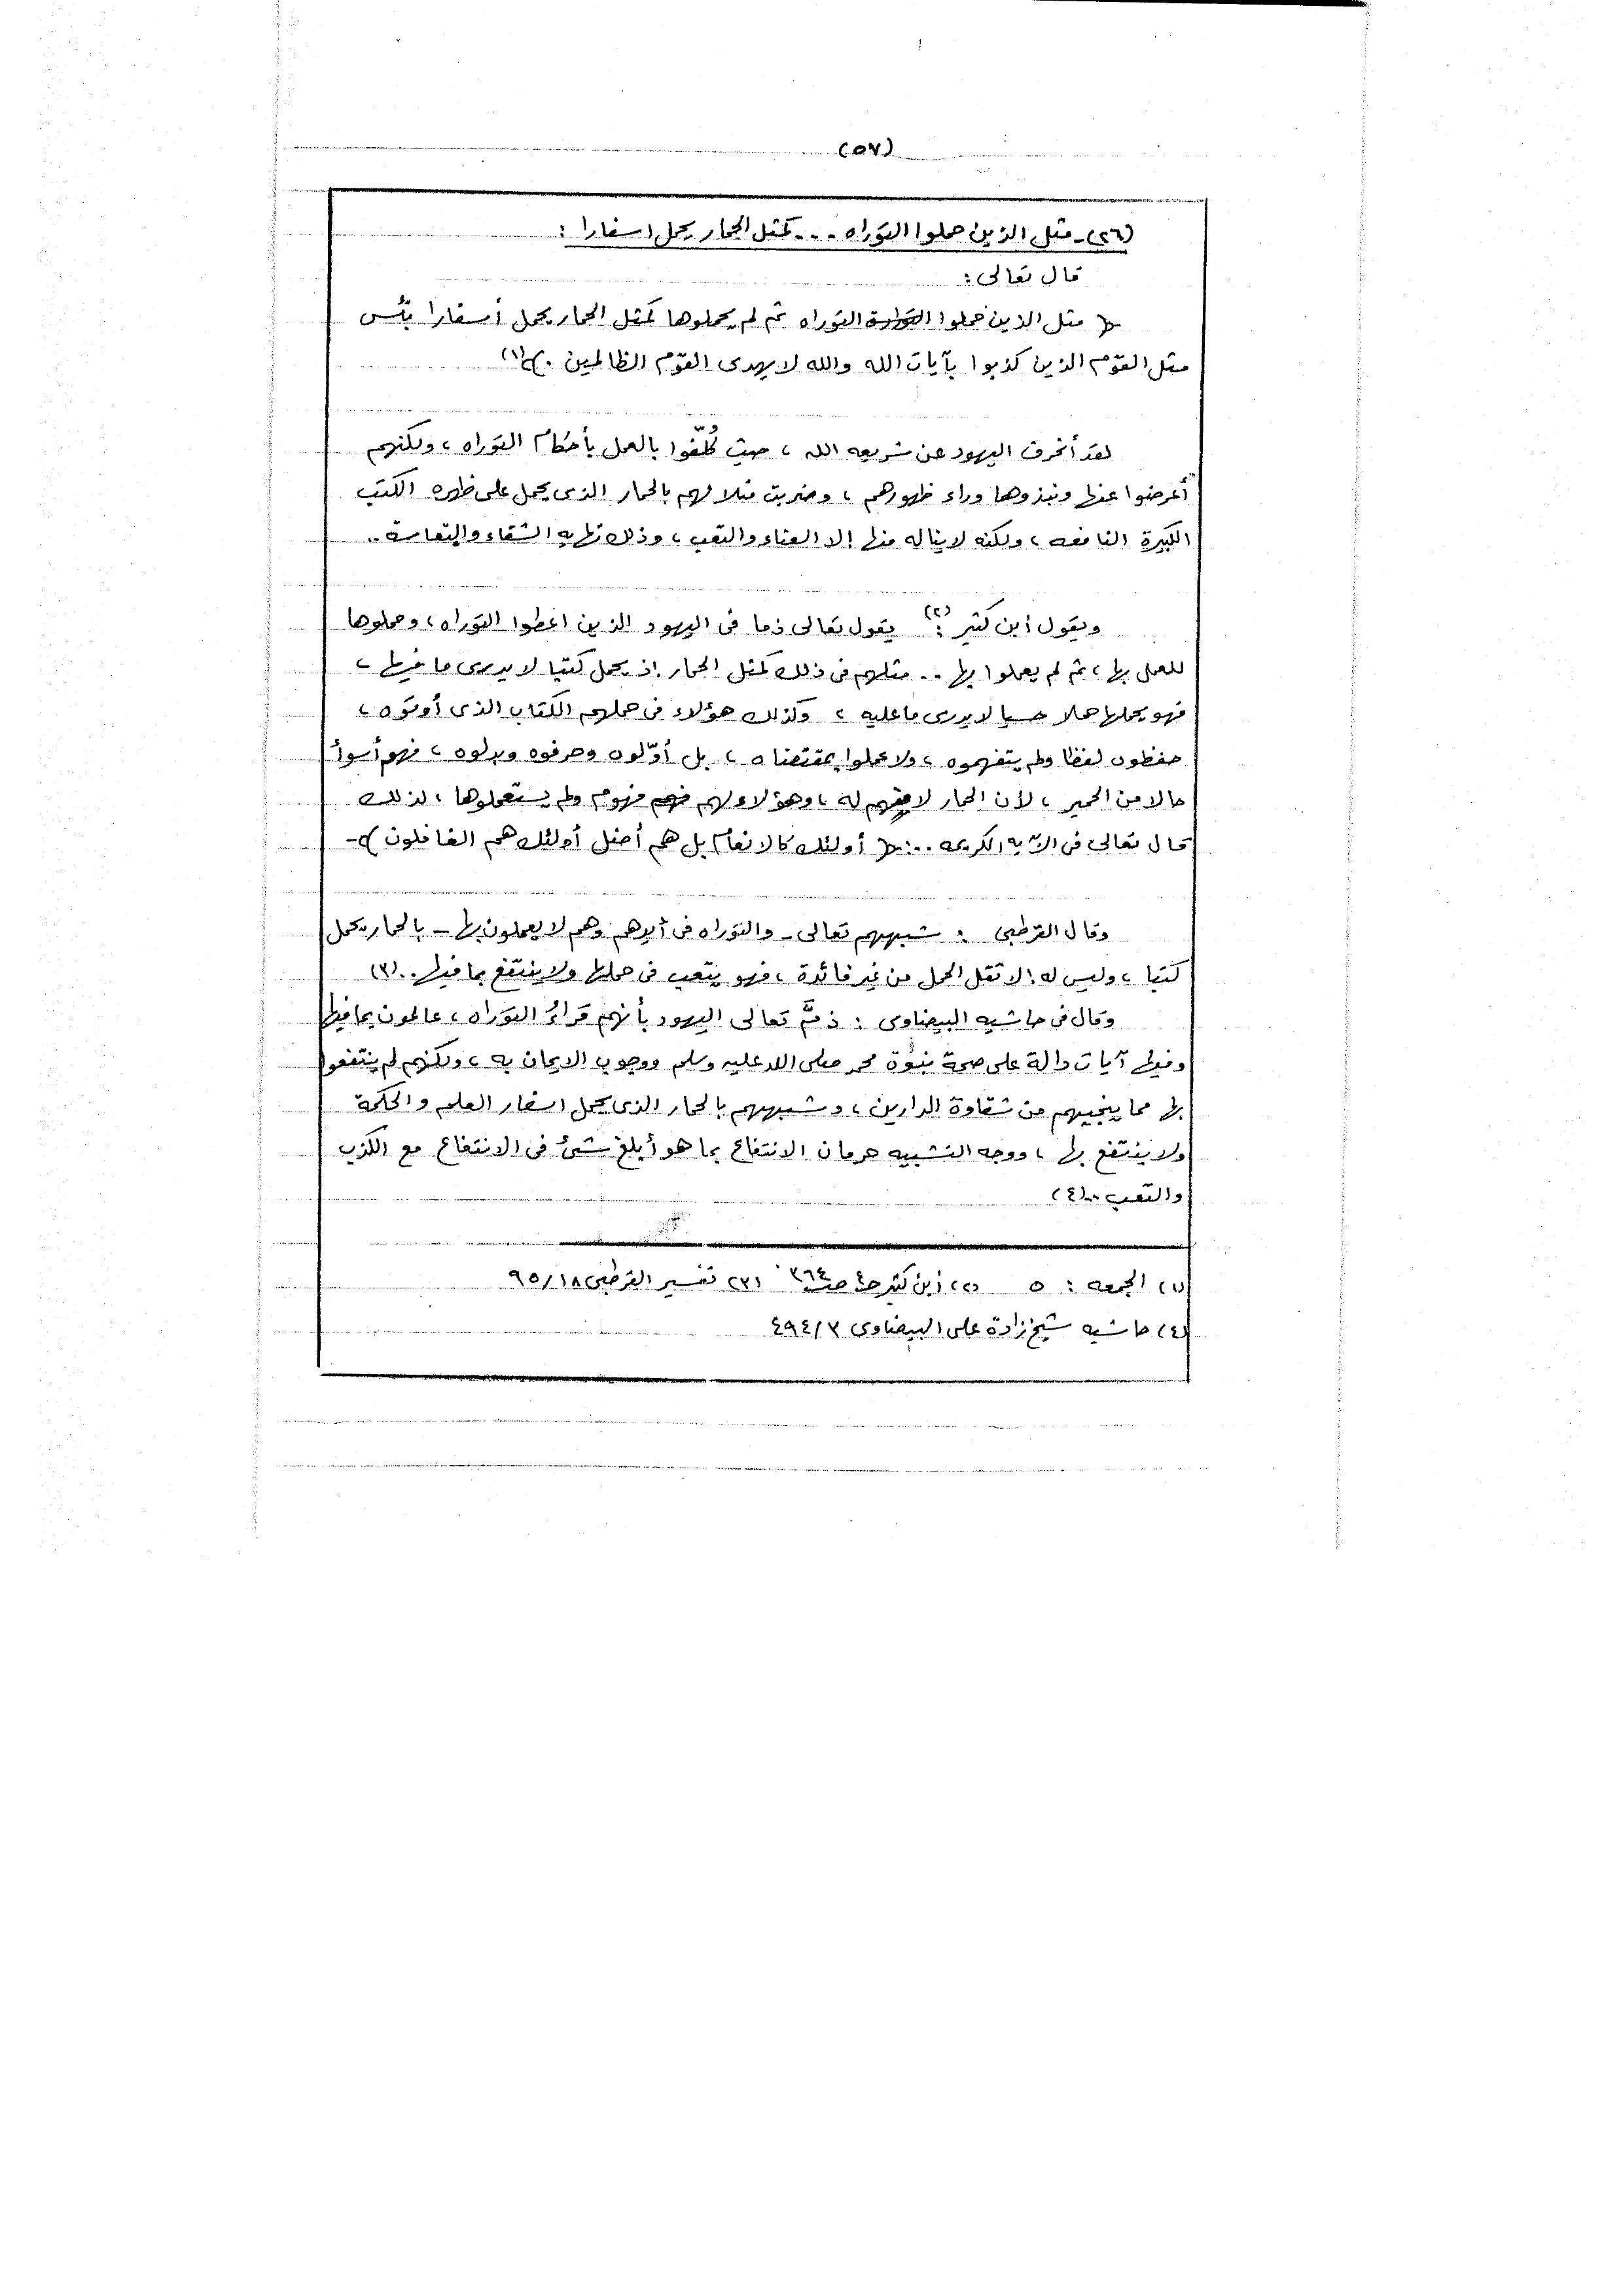 (٥٧)
(٢٦)- مثل الذين حملوا التوراه ... كمثل الحمار يحمل اسفارا :
قال تعالى :
﴿ مثل الذين حملوا التوراه ثم لم يحملوها كمثل الحمار يحمل أسفارا بئس
مثل القوم الذين كذبوا بآيات الله والله لا يهدى القوم الظالمين . ﴾(١)
لقد أنحرف اليهود عن شريعه الله ، حيث كُلّفوا بالعمل بأحكام التوراه ، ولكنهم
أعرضوا عنها ونبذوها وراء ظهورهم ، وضربت مثلا لهم بالحمار الذى يحمل على ظهره الكتب
الكبيرة النافعه ، ولكنه لا يناله منها إلا العناء والتعب ، وذلك نهايه الشقاء والتعاسة ..
ويقول أبن كثير :(٢) يقول تعالى ذما فى اليهود الذين اعطوا التوراه ، وحملوها
للعمل بها ، ثم لم يعملوا بها .. مثلهم فى ذلك كمثل الحمار إذ يحمل كتبا لا يدرى ما فيها ،
فهو يحملها حملا حسيا لا يدرى ما عليه ، وكذلك هؤلاء فى حملهم الكتاب الذى أوتوه ،
حفظون لفظا ولم يتفهموه ، ولا عملوا بمقتضاه ، بل أوّلوه وحرفوه وبدلوه ، فهو أسوأ
حالا من الحمير ، لأن الحمار لا فهم له ، وهؤلاء لهم فهوم ولم يستعملوها ، لذلك
قال تعالى فى الآيه الكريمه ..: ﴿ أولئك كالانعام بل هم أضل أولئك هم الغافلون ﴾-
وقال القرطبى : شبههم تعالى - والتوراه فى أيدهم وهم لا يعملون بها - بالحمار يحمل
كتبا ، وليس له إلا ثقل الحمل من غير فائدة ، فهو يتعب فى حملها ولا ينتفع بما فيها ..(٣)
وقال فى حاشيه البيضاوى : ذمَّ تعالى اليهود بأنهم قراءُ التوراه ، عالمون بما فيها
وفيها آيات دالة على صحة نبوُة محمد صلى الله عليه وسلم ووجوب الايمان به ، ولكنهم لم ينتفعوا
بها مما ينجيهم من شقاوة الدارين ، وشبههم بالحمار الذى يحمل اسفار العلم والحكمة
ولا ينتفع بها ، ووجه التشبيه حرمان الانتفاع بما هو أبلغ شئ فى الانتفاع مع الكذب
والتعب ..(٤)
(١) الجمعه : ٥ (٢) أبن كثير حـ٤ صـ٣٦٤ (٣) تفسير القرطبى ٩٥/١٨
(٤) حاشيه شيخ زادة على البيضاوى ٤٩٤/٣